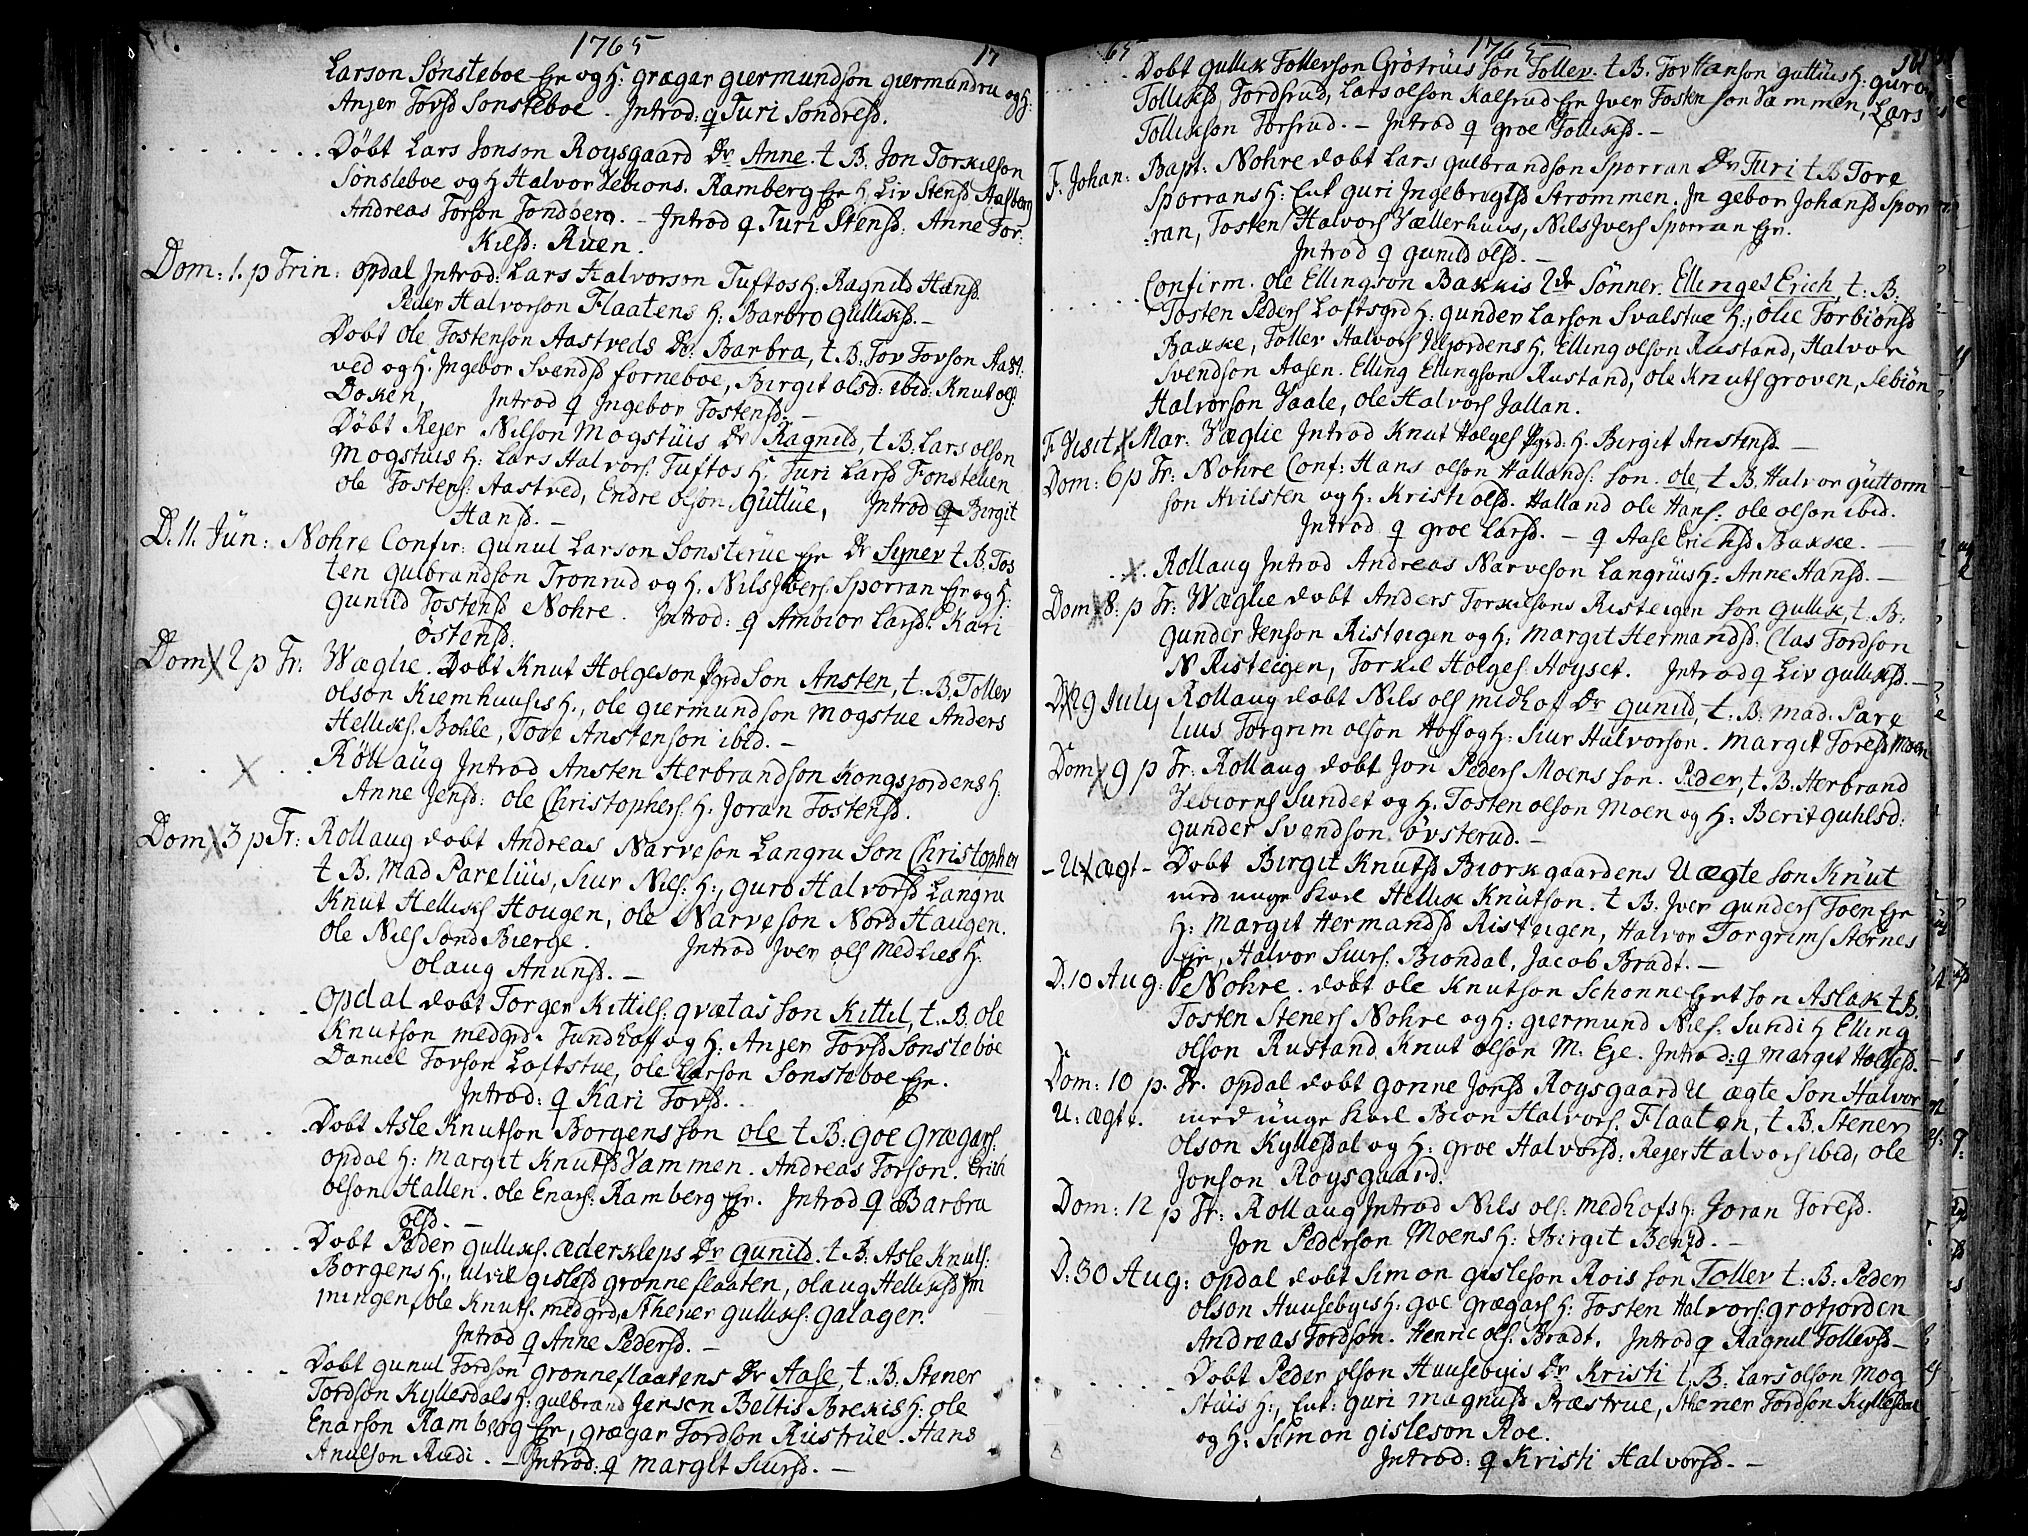 1765
17
Larson Sønsteboe Ejr og H: grægar giermundson giermandru og H:
Anjer Torsd Sonsteboe. Introd: q Turi Sondresd.
Døbt Lars Jonson Roysgaard Dr Anne. t B: Jon Torkilson
Sønsteboe og H Halvor Vebions. Ramberg Ejr H, Liv Stensd Aasberg
Andreas Torson Tondberg. - Introd q Turi Stensd: Anne Tor:
Kilsd: Ruen.
Dom: 1. p Trin: opdal Introd: Lars Halvorson Tuftos H: Ragnild Hansd.
Peder Halvorson Flaatens H: Barbro Gulliksd. -
Dobt Ole Tostenson Aastveds Dr: Barbra, t. B. Tov Torson Aast:
ved og H: Ingebor Svendsd forneboe, Birgit olsd: ibid: Knut ols.
Doken, Introd q Ingebor Tostensd. -
Døbt Rejer Nilson Mogstuis Dr Ragnild, t B. Lars olson
Mogstuis H: Lars Halvors. Tuftos H. Turi Larsd Fonstelien
ole Tostens: Aastved, Endre olson Guttue, Introd q Birgit
Hansd. -
D. 11. Jün: Nohre Confir: gunul Larson Sonsterue Ejr Dr Synev t. B. Tos
ten gulbrandson Tronrud og H: Nils Jvers. Sporran Ejr og H:
gunild Tostensd Nohre. Introd: q Ambior Larsd: Kari
östensd.
Dom: 2 p Tr: Wæglie. Dobt Knut Holgeson Pgrd Son Ansten, t. B. Toller
olson Kiemhuusis H., ole giermundson Mogstue Anders
Helliks. Bohle, Tove Anstenson ibid. -
Rollaug Introd Ansten Herbrandson Kongsjordens H
Anne Jensd: ole Christophers. H. Joran Tostensd.
Dom 3 p Tr: Rollaug dobt Andreas Narveson Langru Son Christopher
t. B. Mad Parelius, Siur Nils: H:, guro Halvorsd Langru
Knut Helliks Hougen, ole Narveson Nord Haugen.
Ole Nils Sønd Bierge. Introd Jver ols Medlies H:
olaug Anunsd. -
opdal dobt Torger Kittils: qvætas Son Kittil, t. B. ole
Knutson medgrd. Tundhoff og H: Anjer Torsd Sonsteboe
Daniel Torson Loftstue, ole Larson Sonsteboe Ejr.
Introd: q Kari Torsd.
Dobt Asle Knutson Borgens Son ole t B: Goe Grægars:
opdal H: Margit Knutsd Vammen. Andreas Torson. Erich
olson Hallen. ole Enars: Ramberg Ejr. Introd q Barbra
olsd. -
Dobt Peder gulliks. æderkleps Dr gunild. t. B: Asle Knuts:
Borgens H., ulvil gislesd grønneflaaten, olaug Helliksd Jm
mingen, ole Knuts. medgrd, Sthener gulliks: galager.
Introd q Anne Pedersd. -
Dobt gunul Tordson grønneflaatens Dr Aase, t. B. Stener
Tordson Kyllesdals H: gulbrand Jenson Beltis Brekis H: ole
Enarson Ramberg Ejr, grægar Tordson Rustrüe. Hans
Anulson Rudi. - Introd: q Margit Siursd. -
65
1765
Dobt gullik Tollevson Grötrüis Son Tollev. t. B. Tov Hanson guttüis H: guro
Tolliksd, Tordsrud, Lars olson Kalsrud Ejr Jver Tosten son Vammen, Lars
Tollikson Torsrud. - Introd q groe Tolliksd. -
F. Johan: Bapt: Nohre dobt Lars gulbrandson Sporran Dr Turi t B Tore
Sporrans H: Enk guri Ingebrugtsd Strommen. Ingebor Johansd Spor
:ran, Tosten Halvors Vællerhuus, Nils Jvers Sporran Ejr.
Introd q gunild olsd. -
Confirm. ole Ellingson Bakkis 2de Sønner. Elling et Erich, t. B.
Tosten Peders Loftsgrd H: gunder Larson Svalstue H:, olie Torbionsd
Bakke, Toller Halvors Jeljordens H. Elling olson Rustand, Halvor
Svendson Aasen. Elling Ellingson Rustand, ole Knuts groven, Sebiön
Halvorson Vaale, ole Halvors Jallan.
F Visit Mar. Væglie Introd Knut Holges Pgrd: H. Birgit Anstensd. -
Dom: 6 p Tr: Nohre Conf: Hans olson Hallands: Son. ole, t. B. Halvor güttorm
son Hvilsten og H: Kristi olsd. Halland ole Hans: ole olson ibid.
Introd q groe Larsd. - q Aase Erichsd Bakke. -
Rollaug Introd Andreas Narveson Langrüis H: Anne Hansd. -
Dom 8: p Tr: Wæglie dobt Anders Torkilsons Risteigen Son gullik, t. B:
gunder Jenson Risteigen og H: Margit Hermandsd. Clas Tordson
N Risteigen, Torkil Holges. Høyset. Introd q Liv gulliksd. -
D. 29 July Rollaug dobt Nils ols midhof Dr gunild, t. B. Mad. Pare
lius Torgrim olson Hoff og H: Siur Halvorson. Margit Toresd Moen
Dom 9 p Tr. Rollaug dobt Jon Peders Moens Son. Peder, t. B. Herbrand
Vebiorns Sundet og H. Tosten olson Moen og H: Berit guhlsd:
gunder Svendson øvsterud. -
- U ægt - Dobt Birgit Knutsd Biorkgaardens Uægte Son Knut
med unge Karl Hellik Knütson. t B. Jver gunders Toen Ejr
H: Margit Hermandsd Risteigen, Halvor Torgrims Sternes
Ejr, Halvor Siurs. Biondal, Jacob Bradt. -
D. 10 Aug: Nohre. dobt ole Knutson Schonne Ejrt Son Aslak t. B.
Tosten Steners Nohre og H: giermund Nils: Sundi H Elling
olson Rustand Knut olson M. Eje. Introd: q Margit Holgesd.
Dom: 10 p. Tr. opdal dobt gonne Jonsd Roysgaard U ægte Son Halvor
U: ægte. med ünge Karl Bion Halvors. Flaaten, t. B. Stener
olson Kyllesdal og H: groe Halvorsd: Rejer Halvors ibid, ole
Jonson Roysgaard.
Dom: 12 p Tr: Rollaug Introd Nils ols: Medhofs H: Joran Toresd.
Jon Pederson Moens H: Birgit Bensd. -
D: 30 Aug: opdal dobt Simon gisleson Rois Son Tollev t. B: Peder
olson Huusebyis H: goe grægars H: Tosten Halvors: grotjorden
Andreas Tordson. Henric ols: Bradt. Introd q Ragnil Tollevsd -
Dobt Peder olson Huusebyis Dr Kristi t. B: Lars olson Mog
stuis H:, Enk: guri Magnusd Præstrue, Sthener Tordson Kyllesdal
og H: Simon gisleson Roe.
Introd: q Kristi Halvorsd. -